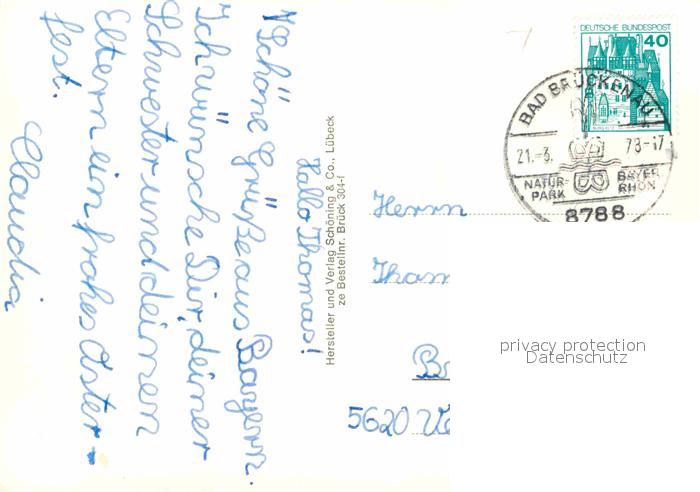 Hallo Thomas!
"Schöne Grüße aus Bayern.
Ich wünsche Dir, deiner
Schwester und deinen
Eltern ein frohes Oster-
fest.
Claudia
Hersteller und Verlag Schöning & Co., Lübeck
ze Bestellnr. Brück 304-f
DEUTSCHE BUNDESPOST
40
BAD BRÜCKENAU
21.-3. 78-17
NATUR-
PARK
BAYER
RHÖN
8788
Herrn
Thom
B
5620 Ve
privacy protection
Datenschutz